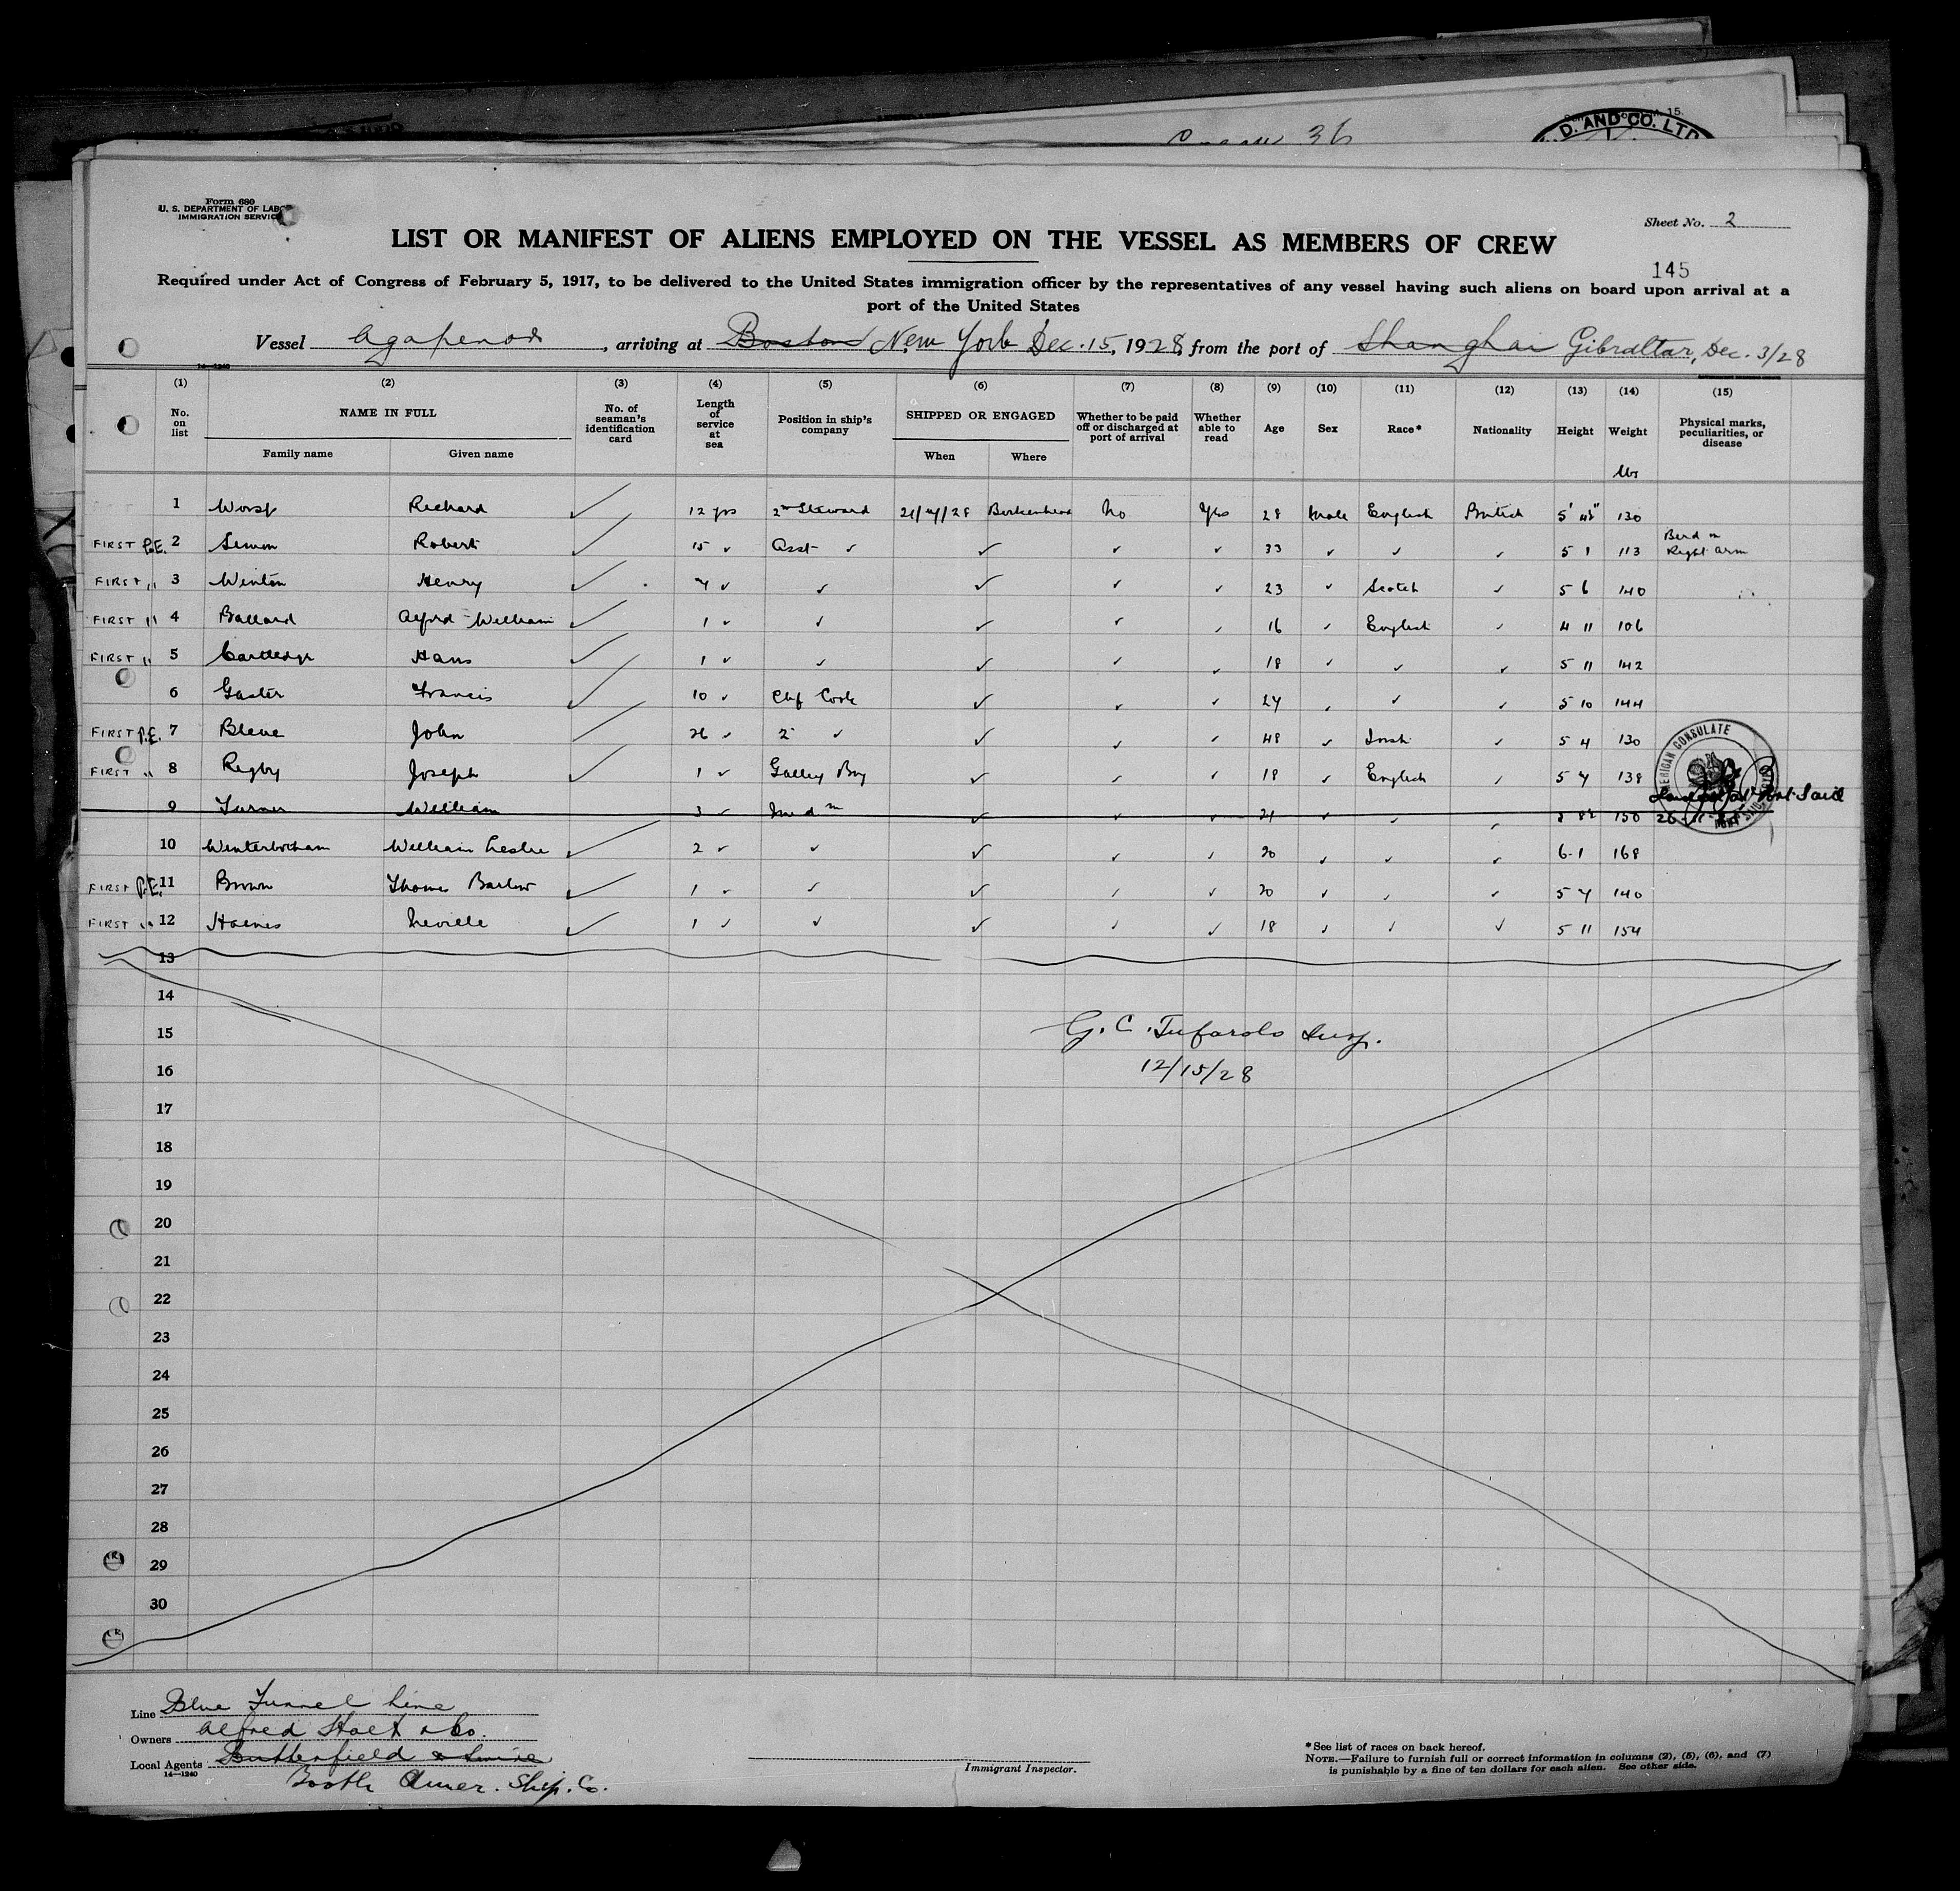 36
D. AND CO. LTD
15
Form 680
U. S. DEPARTMENT OF LABOR
IMMIGRATION SERVICE
Sheet No. 2
LIST OR MANIFEST OF ALIENS EMPLOYED ON THE VESSEL AS MEMBERS OF CREW
145
Required under Act of Congress of February 5, 1917, to be delivered to the United States immigration officer by the representatives of any vessel having such aliens on board upon arrival at a
port of the United States
Vessel Agapenor, arriving at Boston New York Dec. 15, 1928, from the port of Shanghai Gibraltar, Dec. 3/28
14—1240
(1) (2) (3) (4) (5) (6) (7) (8) (9) (10) (11) (12) (13) (14) (15)
No. on list NAME IN FULL No. of seaman's identification card Length of service at sea Position in ship's company SHIPPED OR ENGAGED Whether to be paid off or discharged at port of arrival Whether able to read Age Sex Race* Nationality Height Weight Physical marks, peculiarities, or disease
Family name Given name When Where lbs
1 Richard ✓ 12 yrs 2nd Steward 21/7/28 Birkenhead No Yes 28 Male English British 5' 130
FIRST P.E. 2 Robert ✓ 15 ✓ Asst ✓ ✓ ✓ ✓ 33 ✓ ✓ ✓ 5 1 113 Bird on Right arm
FIRST " 3 Winton Henry ✓ 7 ✓ ✓ ✓ ✓ ✓ 23 ✓ Scotch ✓ 5 6 140
FIRST " 4 Ballard Alfred William ✓ 1 ✓ ✓ ✓ ✓ ✓ 16 ✓ English ✓ 4 11 106
FIRST " 5 Cartledge Hans ✓ 1 ✓ ✓ ✓ ✓ ✓ 18 ✓ ✓ ✓ 5 11 142
6 Gaster Francis ✓ 10 ✓ Chf Cook ✓ ✓ ✓ 24 ✓ ✓ ✓ 5 10 144
FIRST P.E. 7 John 26 ✓ 2 ✓ ✓ ✓ ✓ 48 ✓ Irish ✓ 5 4 130
FIRST " 8 Rigby Joseph ✓ 1 ✓ Galley Boy ✓ ✓ ✓ 18 ✓ English ✓ 5 7 138
AMERICAN CONSULATE PORT SAID
9 Turner William 3 ✓ Mid m ✓ ✓ ✓ 21 ✓ ✓ ✓ 150 Landed at Port Said
10 Winterbotham William Leslie ✓ 2 ✓ ✓ ✓ ✓ ✓ 20 ✓ ✓ ✓ 6 1 168
FIRST P.E. 11 Brown Thomas Barlow ✓ 1 ✓ ✓ ✓ ✓ ✓ 20 ✓ ✓ ✓ 5 7 140
FIRST " 12 Haines Neville ✓ 1 ✓ ✓ ✓ ✓ ✓ 18 ✓ ✓ ✓ 5 11 154
13
14
15
G. C. Tufarolo Insp.
16
12/15/28
17
18
19
20
21
22
23
24
25
26
27
28
29
30
Line Blue Funnel Line
Owners Alfred Holt & Co.
Local Agents Butterfield & Swire
14—1240
Booth Amer. Ship. Co.
Immigrant Inspector.
*See list of races on back hereof.
NOTE.—Failure to furnish full or correct information in columns (2), (5), (6), and (7)
is punishable by a fine of ten dollars for each alien. See other side.